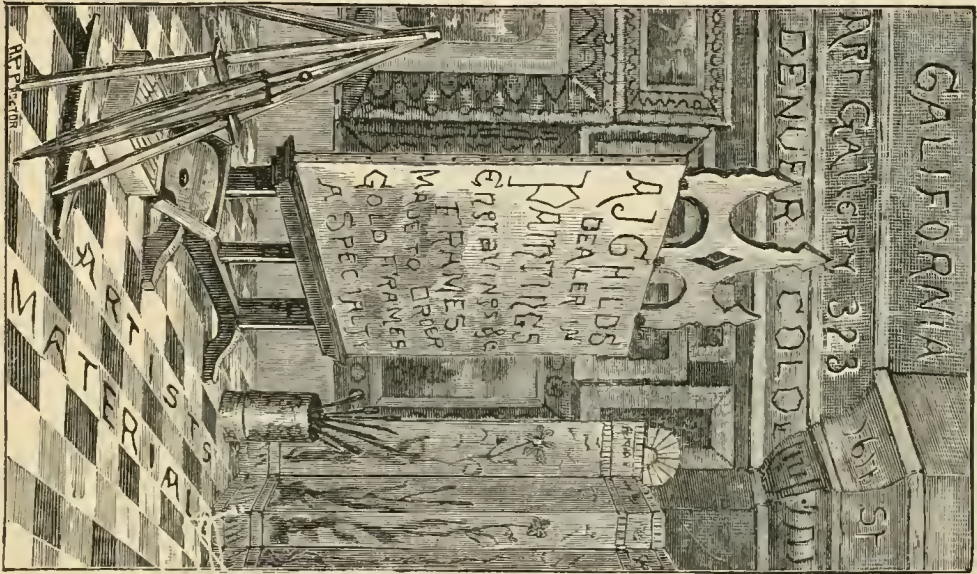 CALIFORNIA
16th St
ART GALLERY 323
DENVER COLO
A J CHILDS
DEALER IN
PAINTINGS
Engravings &c
FRAMES
MADE TO ORDER
GOLD FRAMES
A SPECIALTY
ARTISTS
MATERIAL
A.P.PROCTOR